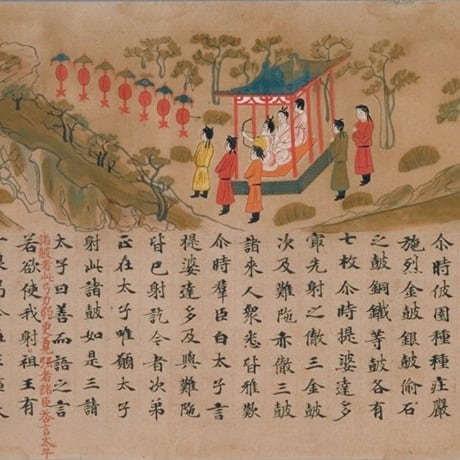 尒時彼園種種莊嚴
施烈金鼓銀鼓偷石
之鼓銅鐵等鼓各有
七枚尒時提婆達多
㝡先射之徹三金鼓
次及難陁亦徹三鼓
諸來人衆悉皆雅歎
尒時羣臣白太子言
提婆達多及與難陁
皆已射訖今者次第
正在太子唯願太子
射此諸鼓如是三請
太子曰善而語之言
諸鼓者此弓力弱更覓強者諸臣答言太子
若欲使我射祖王有